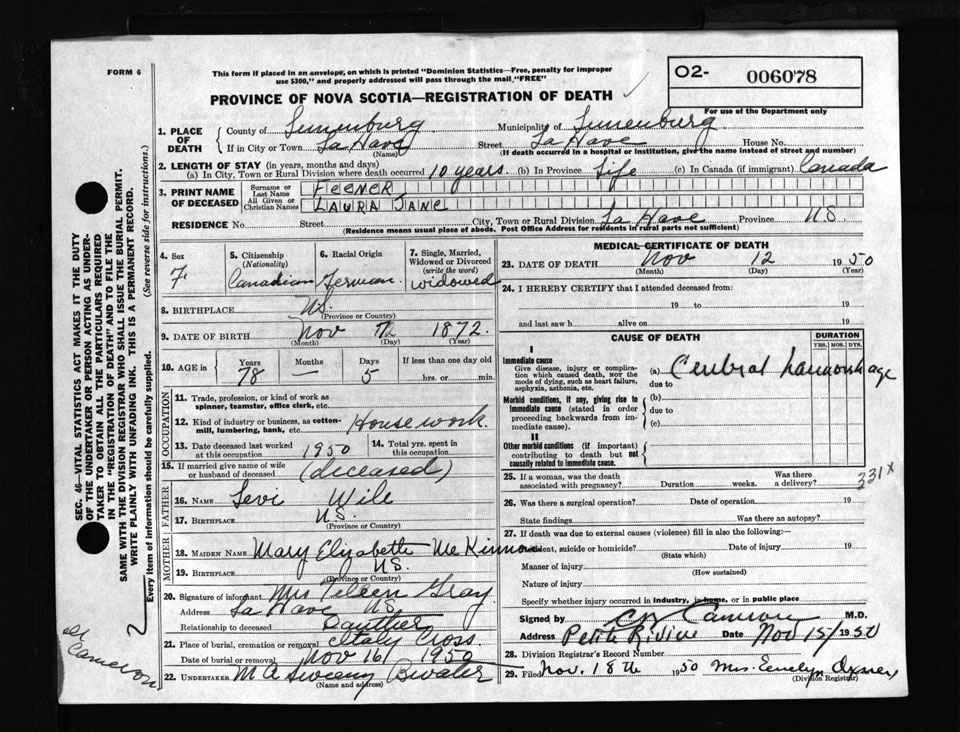 FORM 6
This form if placed in an envelope, on which is printed "Dominion Statistics—Free, penalty for improper
use $300," and properly addressed will pass through the mail "FREE"
O2- 006078
For use of the Department only
PROVINCE OF NOVA SCOTIA—REGISTRATION OF DEATH
1. PLACE OF DEATH { County of Lunenburg Municipality of Lunenburg
If in City or Town La Have (Name) Street La Have House No.
(If death occurred in a hospital or institution, give the name instead of street and number)
2. LENGTH OF STAY (in years, months and days)
(a) In City, Town or Rural Division where death occurred 10 years. (b) In Province Life (c) In Canada (if immigrant) Canada
3. PRINT NAME OF DECEASED { Surname or Last Name FEENER
All Given or Christian Names LAURA JANE
RESIDENCE No. Street City, Town or Rural Division La Have Province NS
(Residence means usual place of abode. Post Office Address for residents in rural parts not sufficient)
4. Sex F
5. Citizenship (Nationality) Canadian
6. Racial Origin German
7. Single, Married, Widowed or Divorced (write the word) widowed
8. BIRTHPLACE NS.
(Province or Country)
9. DATE OF BIRTH Nov 7th 1872.
(Month) (Day) (Year)
10. AGE in { Years 78 Months — Days 5 If less than one day old hrs. or min.
OCCUPATION
11. Trade, profession, or kind of work as spinner, teamster, office clerk, etc.
12. Kind of industry or business, as cotton-mill, lumbering, bank, etc. Housework.
13. Date deceased last worked at this occupation 1950
14. Total yrs. spent in this occupation
15. If married give name of wife or husband of deceased (deceased)
FATHER
16. NAME Levi Wile
17. BIRTHPLACE N.S.
(Province or Country)
MOTHER
18. MAIDEN NAME Mary Elizabeth McKinnon
19. BIRTHPLACE NS.
(Province or Country)
20. Signature of informant Mrs Gray
Address La Have NS
Relationship to deceased Daughter
21. Place of burial, cremation or removal Italy Cross
Date of burial or removal Nov 16 1950
22. UNDERTAKER M A Sweeny Bwater
(Name and address)
MEDICAL CERTIFICATE OF DEATH
23. DATE OF DEATH Nov 12 1950
(Month) (Day) (Year)
24. I HEREBY CERTIFY that I attended deceased from:
19 to 19
and last saw h alive on 19
CAUSE OF DEATH
DURATION
YRS. MOS. DYS.
I
Immediate cause
Give disease, injury or complication which caused death, NOT the mode of dying, such as heart failure, asphyxia, asthenia, etc.
(a) Cerebral haemorrhage
due to
Morbid conditions, if any, giving rise to immediate cause (stated in order proceeding backwards from immediate cause).
(b)
due to
(c)
II
Other morbid conditions (if important) contributing to death but not causally related to immediate cause.
25. If a woman, was the death associated with pregnancy? Duration weeks. Was there a delivery?
331 x
26. Was there a surgical operation? Date of operation 19
State findings Was there an autopsy?
27. If death was due to external causes (violence) fill in also the following:—
Accident, suicide or homicide? Date of injury 19
(State which)
Manner of injury
(How sustained)
Nature of injury
Specify whether injury occurred in industry, in home, or in public place
Signed by Cameron M.D.
Address Petite Riviere Date Nov 15/ 1950
28. Division Registrar's Record Number
29. Filed Nov. 18th 1950 Mrs. Evelyn
(Division Registrar)
SEC. 46—VITAL STATISTICS ACT MAKES IT THE DUTY
OF THE UNDERTAKER OR PERSON ACTING AS UNDER-
TAKER TO OBTAIN ALL THE PARTICULARS REQUIRED
IN THE "REGISTRATION OF DEATH" AND TO FILE THE
SAME WITH THE DIVISION REGISTRAR WHO SHALL ISSUE THE BURIAL PERMIT.
WRITE PLAINLY WITH UNFADING INK. THIS IS A PERMANENT RECORD.
Every item of information should be carefully supplied. (See reverse side for instructions.)
2
Cameron